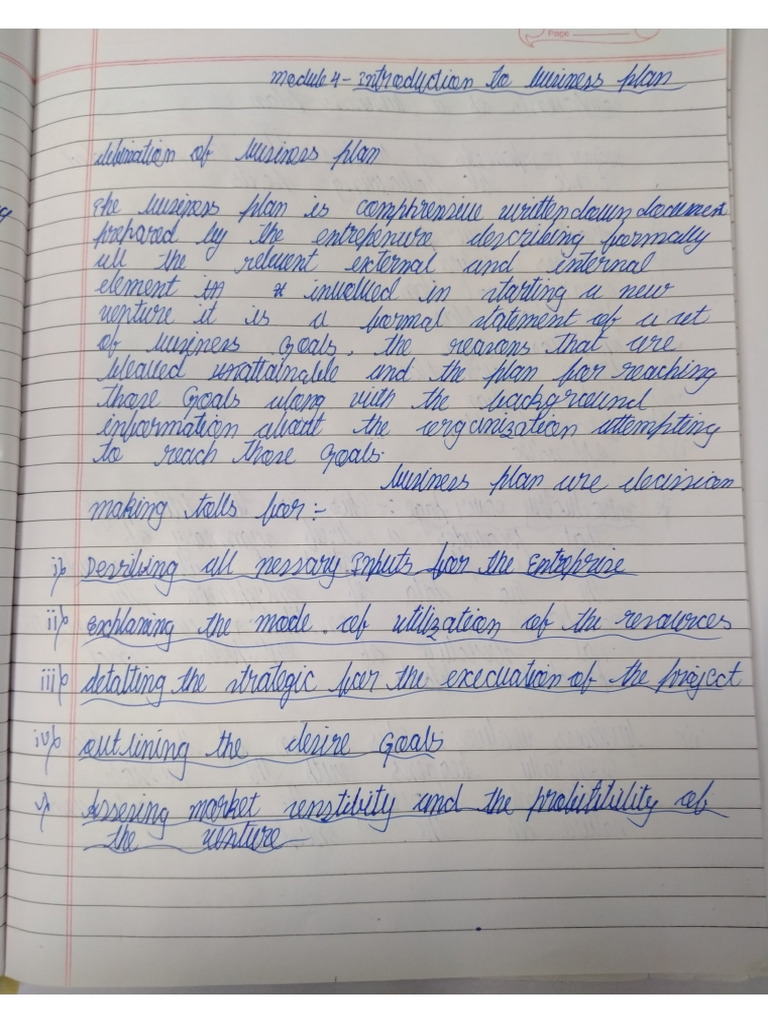 Page
Module 4 - Introduction to business plan
defination of business plan
The business plan is comphrensive written down document
prepared by the entrepenure describing formally
all the relevent external and internal
element in involved in starting a new
venture it is a formal statement of a set
of business Goals, the reasons that are
bleaued unattainable and the plan for reaching
those Goals along with the background
information about the organization attempting
to reach those Goals.
business plan are decision
making tolls for:-
i) Desribing all nessary Inputs for the Entreprise
ii) Exphaning the mode of utilization of the resources
iii) detatting the strategic for the execuation of the project
iv) outlining the desire Goals
v) Assesing market senstibity and the profitibility of
the venture